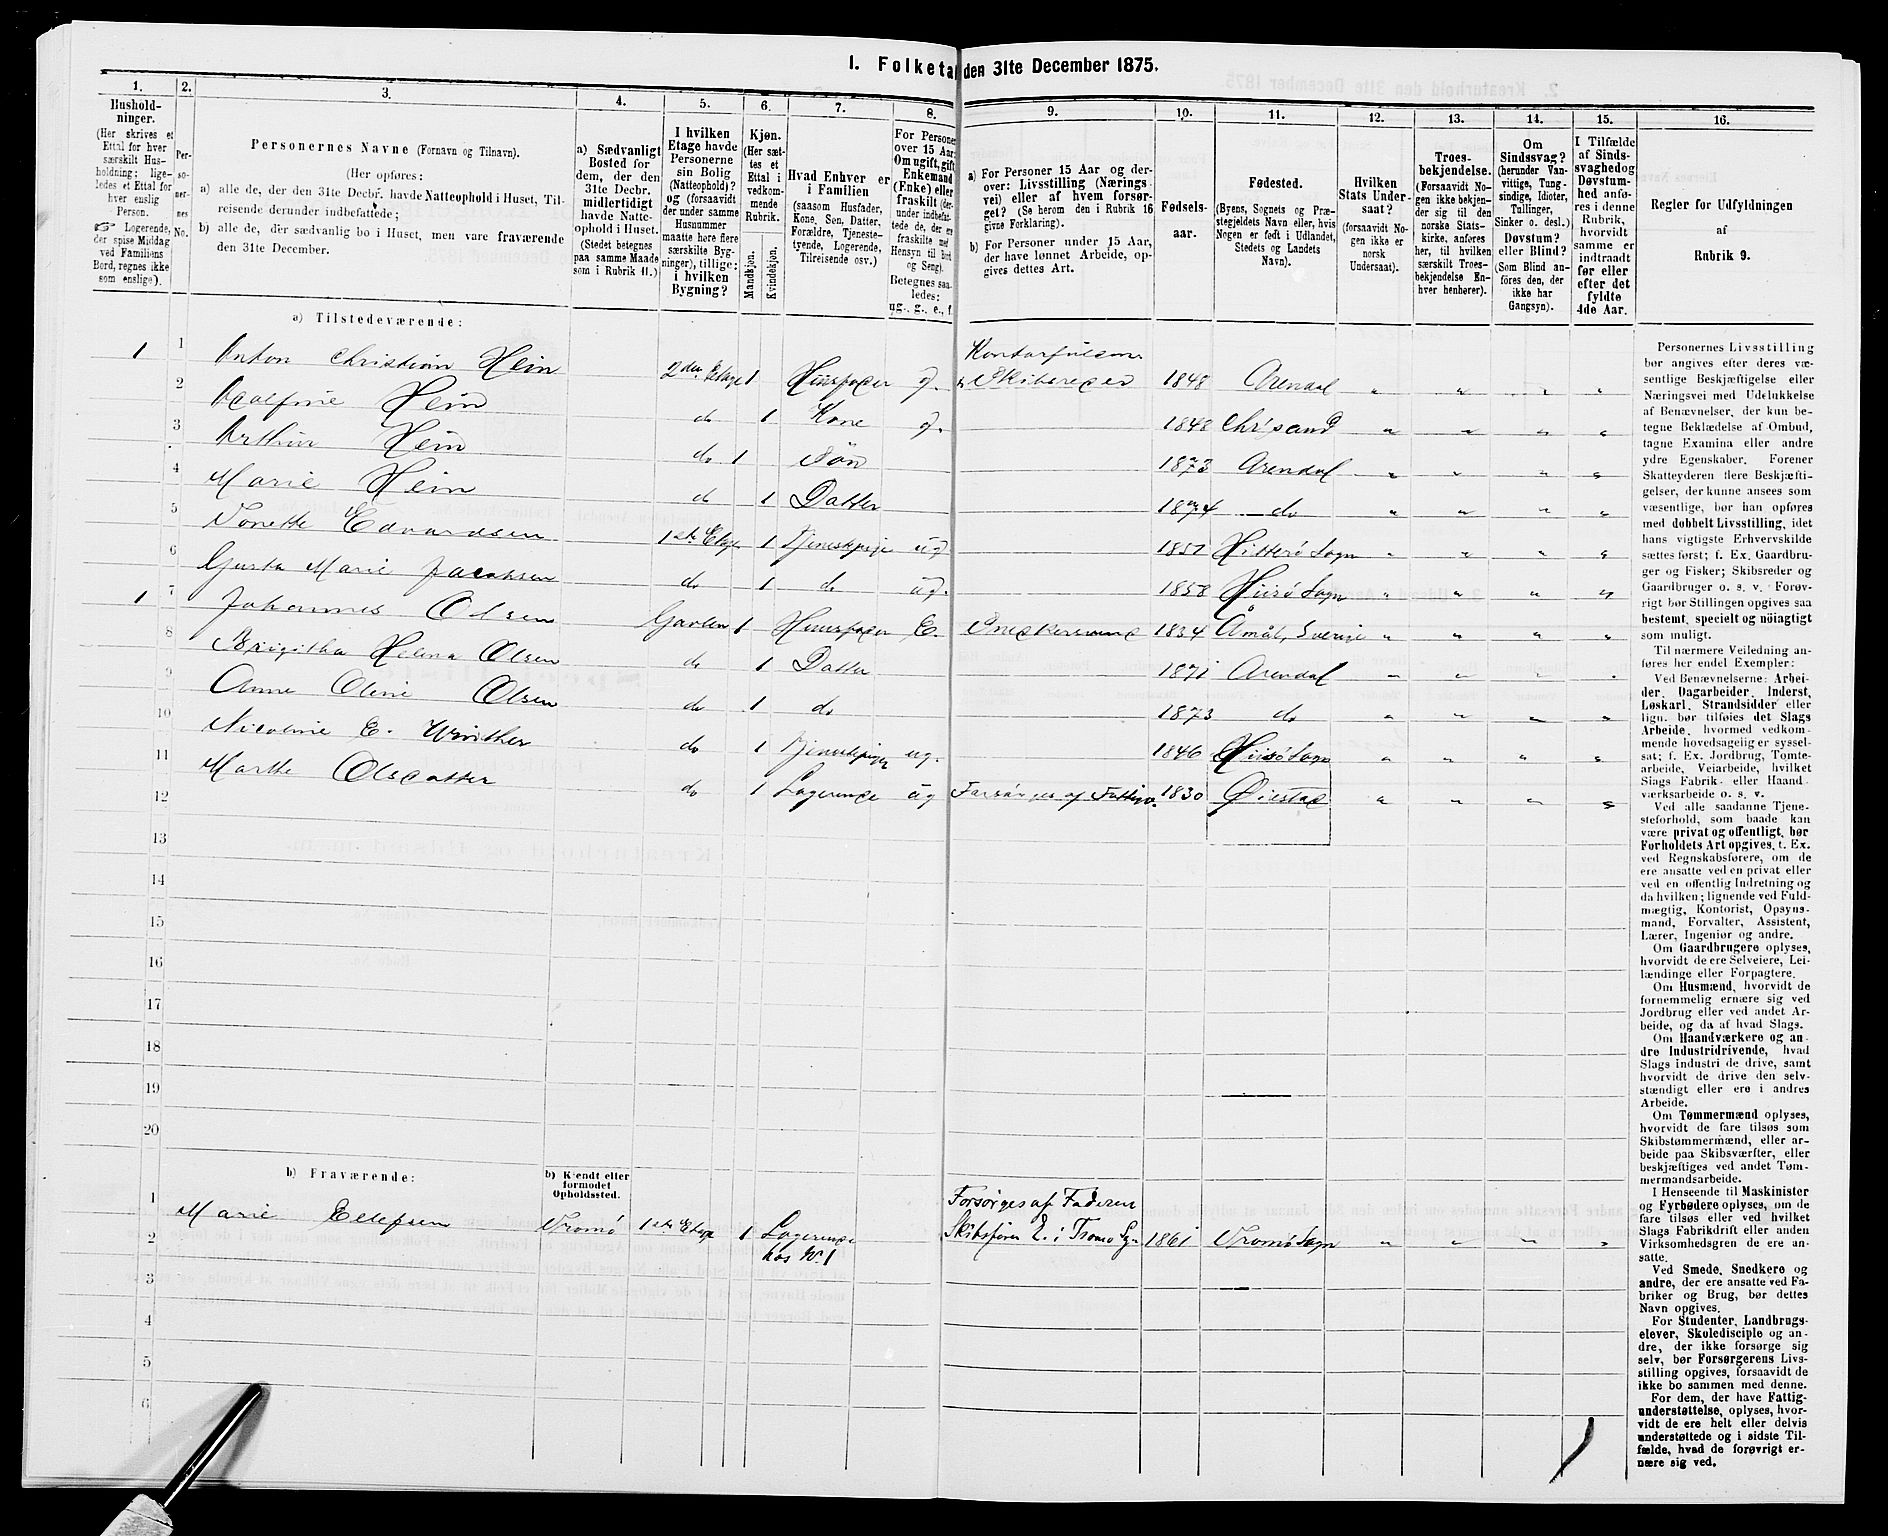 1. Folketal den 31te December 1875.
1. 2. 3. 4. 5. 6. 7. 8. 9. 10. 11. 12. 13. 14. 15. 16.
Husholdninger. (Her skrives et Ettal for hver særskilt Husholdning; ligeledes et Ettal for hver enslig Person. ☞ Logerende, der spise Middag ved Familiens Bord, regnes ikke som enslige).
Personernes No.
Personernes Navne (Fornavn og Tilnavn).
(Her opføres:
a) alle de, der den 31te Decbr. havde Natteophold i Huset, Tilreisende derunder indbefattede;
b) alle de, der sædvanlig bo i Huset, men vare fraværende den 31te December.
a) Sædvanligt Bosted for dem, der den 31te Decbr. midlertidigt havde Natteophold i Huset. (Stedet betegnes paa samme Maade som i Rubrik 11.)
I hvilken Etage havde Personerne sin Bolig (Natteophold)? og (forsaavidt der under samme Husnummer maatte høre flere særskilte Bygninger), tillige: i hvilken Bygning?
Kjøn. (Her sættes et Ettal i vedkommende Rubrik.
Mandkjøn. Kvindekjøn.
Hvad Enhver er i Familien (saasom Husfader, Kone, Søn, Datter, Forældre, Tjenestetyende, Logerende, Tilreisende osv.)
For Personer over 15 Aar: Om ugift, gift, Enkemand (Enke) eller fraskilt
Betegnes saaledes: ug., g., e., f.
a) For Personer 15 Aar og derover: Livsstilling (Næringsvei) eller af hvem forsørget? (Se herom den i Rubrik 16 givne Forklaring).
b) For Personer under 15 Aar, der have lønnet Arbeide, opgives dettes Art.
Fødselsaar.
Fødested. (Byens, Sognets og Præstegjeldets Navn eller, hvis Nogen er født i Udlandet, Stedets og Landets Navn).
Hvilken Stats Undersaat? (forsaavidt Nogen ikke er norsk Undersaat).
Troesbekjendelse. (Forsaavidt Nogen ikke bekjender sig til den norske Statskirke, anføres her, til hvilken særskilt Troesbekjendelse Enhver henhører).
Om Sindssvag? (herunder Vanvittige, Tungsindige, Idioter, Tullinger, Sinker o. desl.) Døvstum? eller Blind? (Som Blind anføres den, der ikke har Gangsyn).
I Tilfælde af Sindssvaghed og Døvstumhed anføres i denne Rubrik, hvorvidt samme er indtraadt før eller efter det fyldte 4de Aar.
Regler for Udfyldningen af Rubrik 9.
a) Tilstedeværende:
1 1 Anton Christian Hein 2den Etage 1 Huusfader g. Skibsreder 1848 Arendal
2 Adolfine Hein do 1 Kone g. 1848 Chrisand
3 Arthur Hein do 1 Søn 1873 Arendal
4 Marie Hein do 1 Datter 1874 do
5 Tonette Edvardsen 1ste Etage 1 Tjenestpige ug 1851 Hitterø Sogn
6 Gusta Marie Jacobsen do 1 do ug. 1858 Hiisø Sogn
1 7 Johannes Olsen Gavlen 1 Huusfader E. Snedkersvend 1834 Åmål, Sverige
8 Brigitha Helena Olsen do 1 Datter 1871 Arendal
9 Anne Oline Olsen do 1 do 1873 do
10 Nicoline E. Winther do 1 Tjenestepige ug. 1846 Hiisø Sogn
11 Marthe Olsdatter do 1 Logerende ug Forsørges af Fattigv. 1830 Øiestad
12
13
14
15
16
17
18
19
20
b) Fraværende:
b) Kjendt eller formodet Opholdssted.
1 Marie Ellefsen Tromø 1ste Etage 1 Logerende hos No. 1 Forsørges af Faderen Skibsfører E. i Tromø Sgn 1861 Tromø Sogn
2
3
4
5
6
Personernes Livsstilling bør angives efter deres væsentlige Beskjæftigelse eller Næringsvei med Udelukkelse af Benævnelser, der kun betegne Beklædelse af Ombud, tagne Examina eller andre ydre Egenskaber. Forener Skatteyderen flere Beskjæftigelser, der kunne ansees som væsentlige, bør han opføres med dobbelt Livsstilling, idet hans vigtigste Erhvervskilde sættes først; f. Ex. Gaardbruger og Fisker; Skibsreder og Gaardbruger o. s. v. Forøvrigt bør Stillingen opgives saa bestemt, specielt og nøiagtigt som muligt.
Til nærmere Veiledning anføres her endel Exempler:
Ved Benævnelserne: Arbeider, Dagarbeider, Inderst, Løskarl, Strandsidder eller lign. bør tilføies det Slags Arbeide, hvormed vedkommende hovedsagelig er sysselsat; f. Ex. Jordbrug, Tomtearbeide, Veiarbeide, hvilket Slags Fabrik- eller Haandværksarbeide o. s. v.
Ved alle saadanne Tjenesteforhold, som baade kan være privat og offentligt, bør Forholdets Art opgives, t. Ex. ved Regnskabsførere, om de ere ansatte ved en privat eller ved en offentlig Indretning og da hvilken; lignende ved Fuldmægtig, Kontorist, Opsynsmand, Forvalter, Assistent, Lærer, Ingeniør og andre.
Om Gaardbrugere oplyses, hvorvidt de ere Selveiere, Leilændinge eller Forpagtere.
Om Husmænd, hvorvidt de fornemmelig ernære sig ved Jordbrug eller ved andet Arbeide, og da af hvad Slags.
Om Haandværkere og andre Industridrivende, hvad Slags industri de drive, samt hvorvidt de drive den selvstændigt eller ere i andres Arbeide.
Om Tømmermænd oplyses, hvorvidt de fare tilsøs som Skibstømmermænd, eller arbeide paa Skibsværfter, eller beskjæftiges ved andet Tømmermandsarbeide.
I Henseende til Maskinister og Fyrbødere oplyses, om de fare tilsøs eller ved hvilket Slags Fabrikdrift eller anden Virksomhedsgren de ere ansatte.
Ved Smede, Snedkere og andre, der ere ansatte ved Fabriker og Brug, bør dettes Navn opgives.
For Studenter, Landbrugselever, Skoledisciple og andre, der ikke forsørge sig selv, bør Forsørgerens Livsstilling opgives, forsaavidt de ikke bo sammen med denne.
For dem, der have Fattigunderstøttelse, oplyses, hvorvidt de ere helt eller delvis understøttede og i sidste Tilfælde, hvad de forøvrigt ernære sig ved.